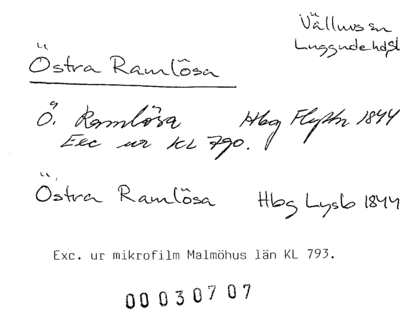 Välluvs sn
Luggude hd
Östra Ramlösa
Ö. Ramlösa Hbg Flyktn 1844
Exc ur KL 790.
Östra Ramlösa Hbg Lysb 1844
Exc. ur mikrofilm Malmöhus län KL 793.
00 030707